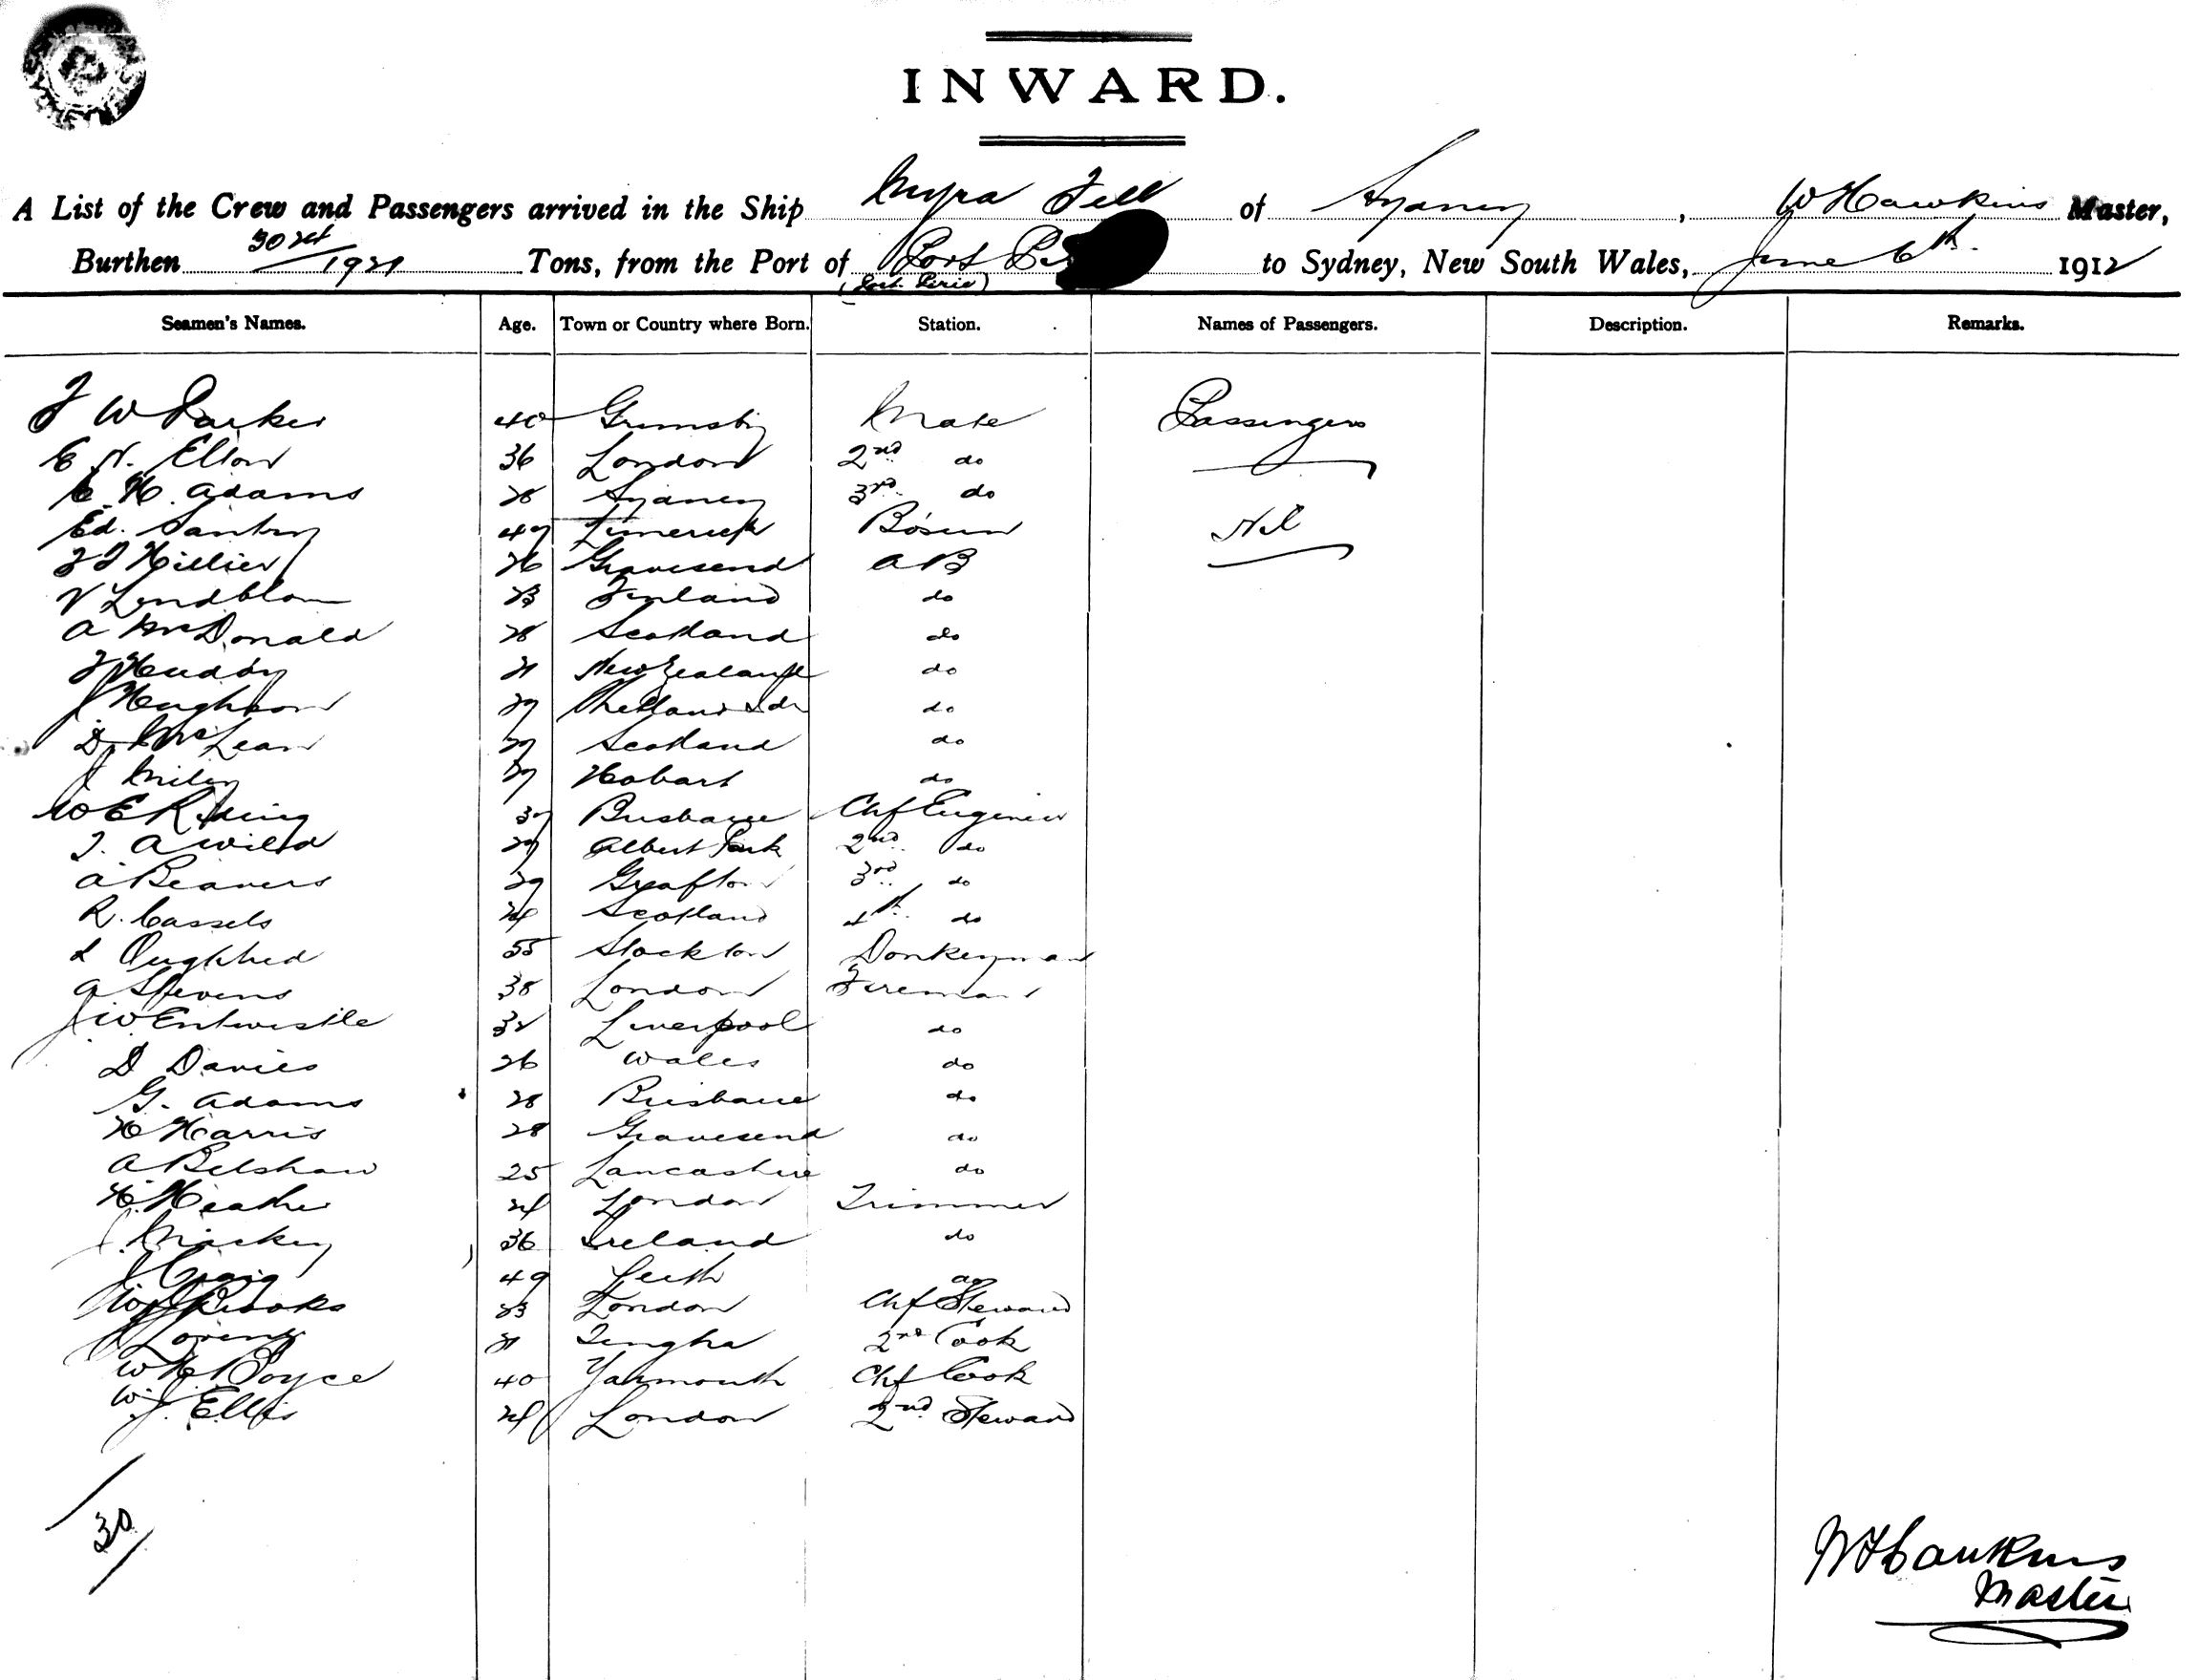 INWARD.
A List of the Crew and Passengers arrived in the Ship Myra Fell of Sydney, W Hawkins Master,
Burthen 1921 Tons, from the Port of Port (Port Pirie) to Sydney, New South Wales, June 6th 1912
Seamen's Names. Age. Town or Country where Born. Station. Names of Passengers. Description. Remarks.
F W Parker 40 Grimsby Mate Passengers
E N. Elton 36 London 2nd do
C. H. Adams 28 Sydney 3rd do
Ed. Santry 47 Limerick Bosun Nil
Hillier 26 Gravesend AB
V Lindblom 23 Finland do
A McDonald 28 Scotland do
21 New Zealand do
J Hughson 27 Shetland Ids do
D McLean 27 Scotland do
J 27 Hobart do
W E Riding 37 Brisbane Chf Engineer
T. A Wild 27 Albert Park 2nd do
A Beavers 29 Grafton 3rd do
R. Cassels 24 Scotland 4th do
55 Stockton Donkeyman
A Stevens 38 London Fireman
J W Entwistle 32 Liverpool do
D Davies 26 Wales do
G. Adams 28 Brisbane do
H Harris 28 Gravesend do
A Belshaw 25 Lancashire do
H. Heather 24 London Trimmer
J. Mackey 36 Ireland do
J Craig 49 Leith do
Brooks 23 London Chf Steward
21 Tingha 2nd Cook
W H Boyce 40 Yarmouth Chf Cook
W. J. Ellis 24 London 2nd Steward
30
W Hawkins
Master